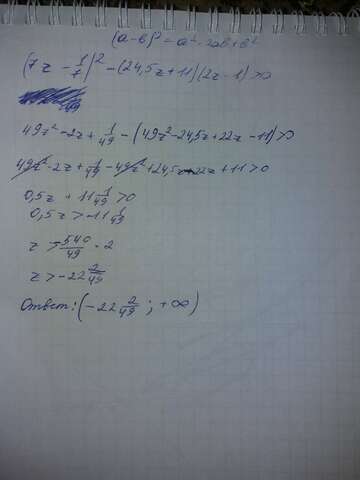 (a-в)² = a² - 2aв + в²
(7z - 1/7)² - (24,5z + 11)(2z - 1) > 0
49z² - 2z + 1/49 - (49z² - 24,5z + 22z - 11) > 0
49z² - 2z + 1/49 - 49z² + 24,5z - 22z + 11 > 0
0,5z + 11 1/49 > 0
0,5z > -11 1/49
z > 540/49 · 2
z > -22 2/49
Ответ: (-22 2/49 ; +∞)